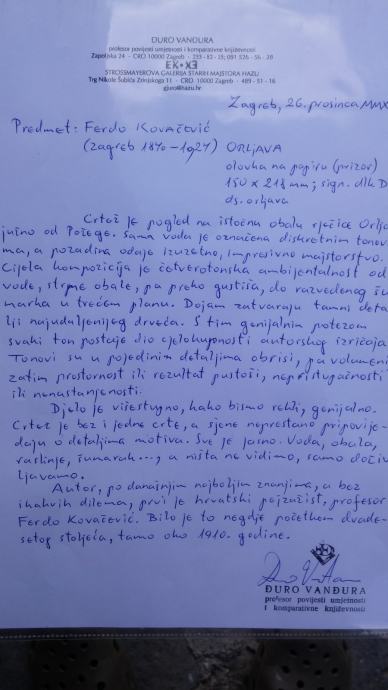 ĐURO VANĐURA
profesor povijesti umjetnosti i komparativne književnosti
Zapoljska 24 - CRO 10000 Zagreb
STROSSMAYEROVA GALERIJA STARIH MAJSTORA HAZU
Trg Nikole Šubića Zrinjskoga 11 - CRO 10000 Zagreb
gjuro@hazu.hr
Zagreb, 26. prosinca MMX
Predmet: Ferdo Kovačević
(Zagreb 1870-1927) ORLJAVA
olovka na papiru (prizor)
150 x 218 mm; sign. dlk D
ds. orljava
Crtež je pogled na istočnu obalu rječice Orlja
južno od Požege. Sama voda je označena diskretnim tonov
ma, a pozadina odaje izuzetno, impresivno majstorstvo.
Cijela kompozicija je četverotonska ambijentalnost od
vode, strme obale, pa preko gustiša, do razvedenog šu
marka u trećem planu. Dojam zatvaraju tamni deta
lji najudaljenijeg drveća. S tim genijalnim potezom
svaki ton postaje dio cjelokupnosti autorskog izričaja
Tonovi su u pojedinim detaljima obrisi, pa volumeni
zatim prostornost ili rezultat pustoši, nepristupačnosti
ili nenastanjenosti.
Djelo je višestrugo, kako bismo rekli, genijalno.
Crtež je bez i jedne crte, a sjene neprestano pripovije-
daju o detaljima motiva. Sve je jasno. Voda, obala,
raslinje, šumarak..., a ništa ne vidimo, samo doživ
ljavamo.
Autor, po današnjim najboljim znanjima, a bez
ikakvih dilema, prvi je hrvatski pejzažist, profesor
Ferdo Kovačević. Bilo je to negdje početkom dvade-
setog stoljeća, tamo oko 1910. godine.
ĐURO VANĐURA
profesor povijesti umjetnosti
i komparativne književnosti